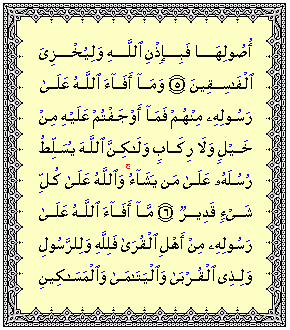 أُصُولِهَا فَبِإِذْنِ ٱللَّهِ وَلِيُخْزِىَ
ٱلْفَـٰسِقِينَ ۝٥ وَمَآ أَفَآءَ ٱللَّهُ عَلَىٰ
رَسُولِهِۦ مِنْهُمْ فَمَآ أَوْجَفْتُمْ عَلَيْهِ مِنْ
خَيْلٍ وَلَا رِكَابٍ وَلَـٰكِنَّ ٱللَّهَ يُسَلِّطُ
رُسُلَهُۥ عَلَىٰ مَن يَشَآءُ ۚ وَٱللَّهُ عَلَىٰ كُلِّ
شَىْءٍ قَدِيرٌ ۝٦ مَّآ أَفَآءَ ٱللَّهُ عَلَىٰ
رَسُولِهِۦ مِنْ أَهْلِ ٱلْقُرَىٰ فَلِلَّهِ وَلِلرَّسُولِ
وَلِذِى ٱلْقُرْبَىٰ وَٱلْيَتَـٰمَىٰ وَٱلْمَسَـٰكِينِ